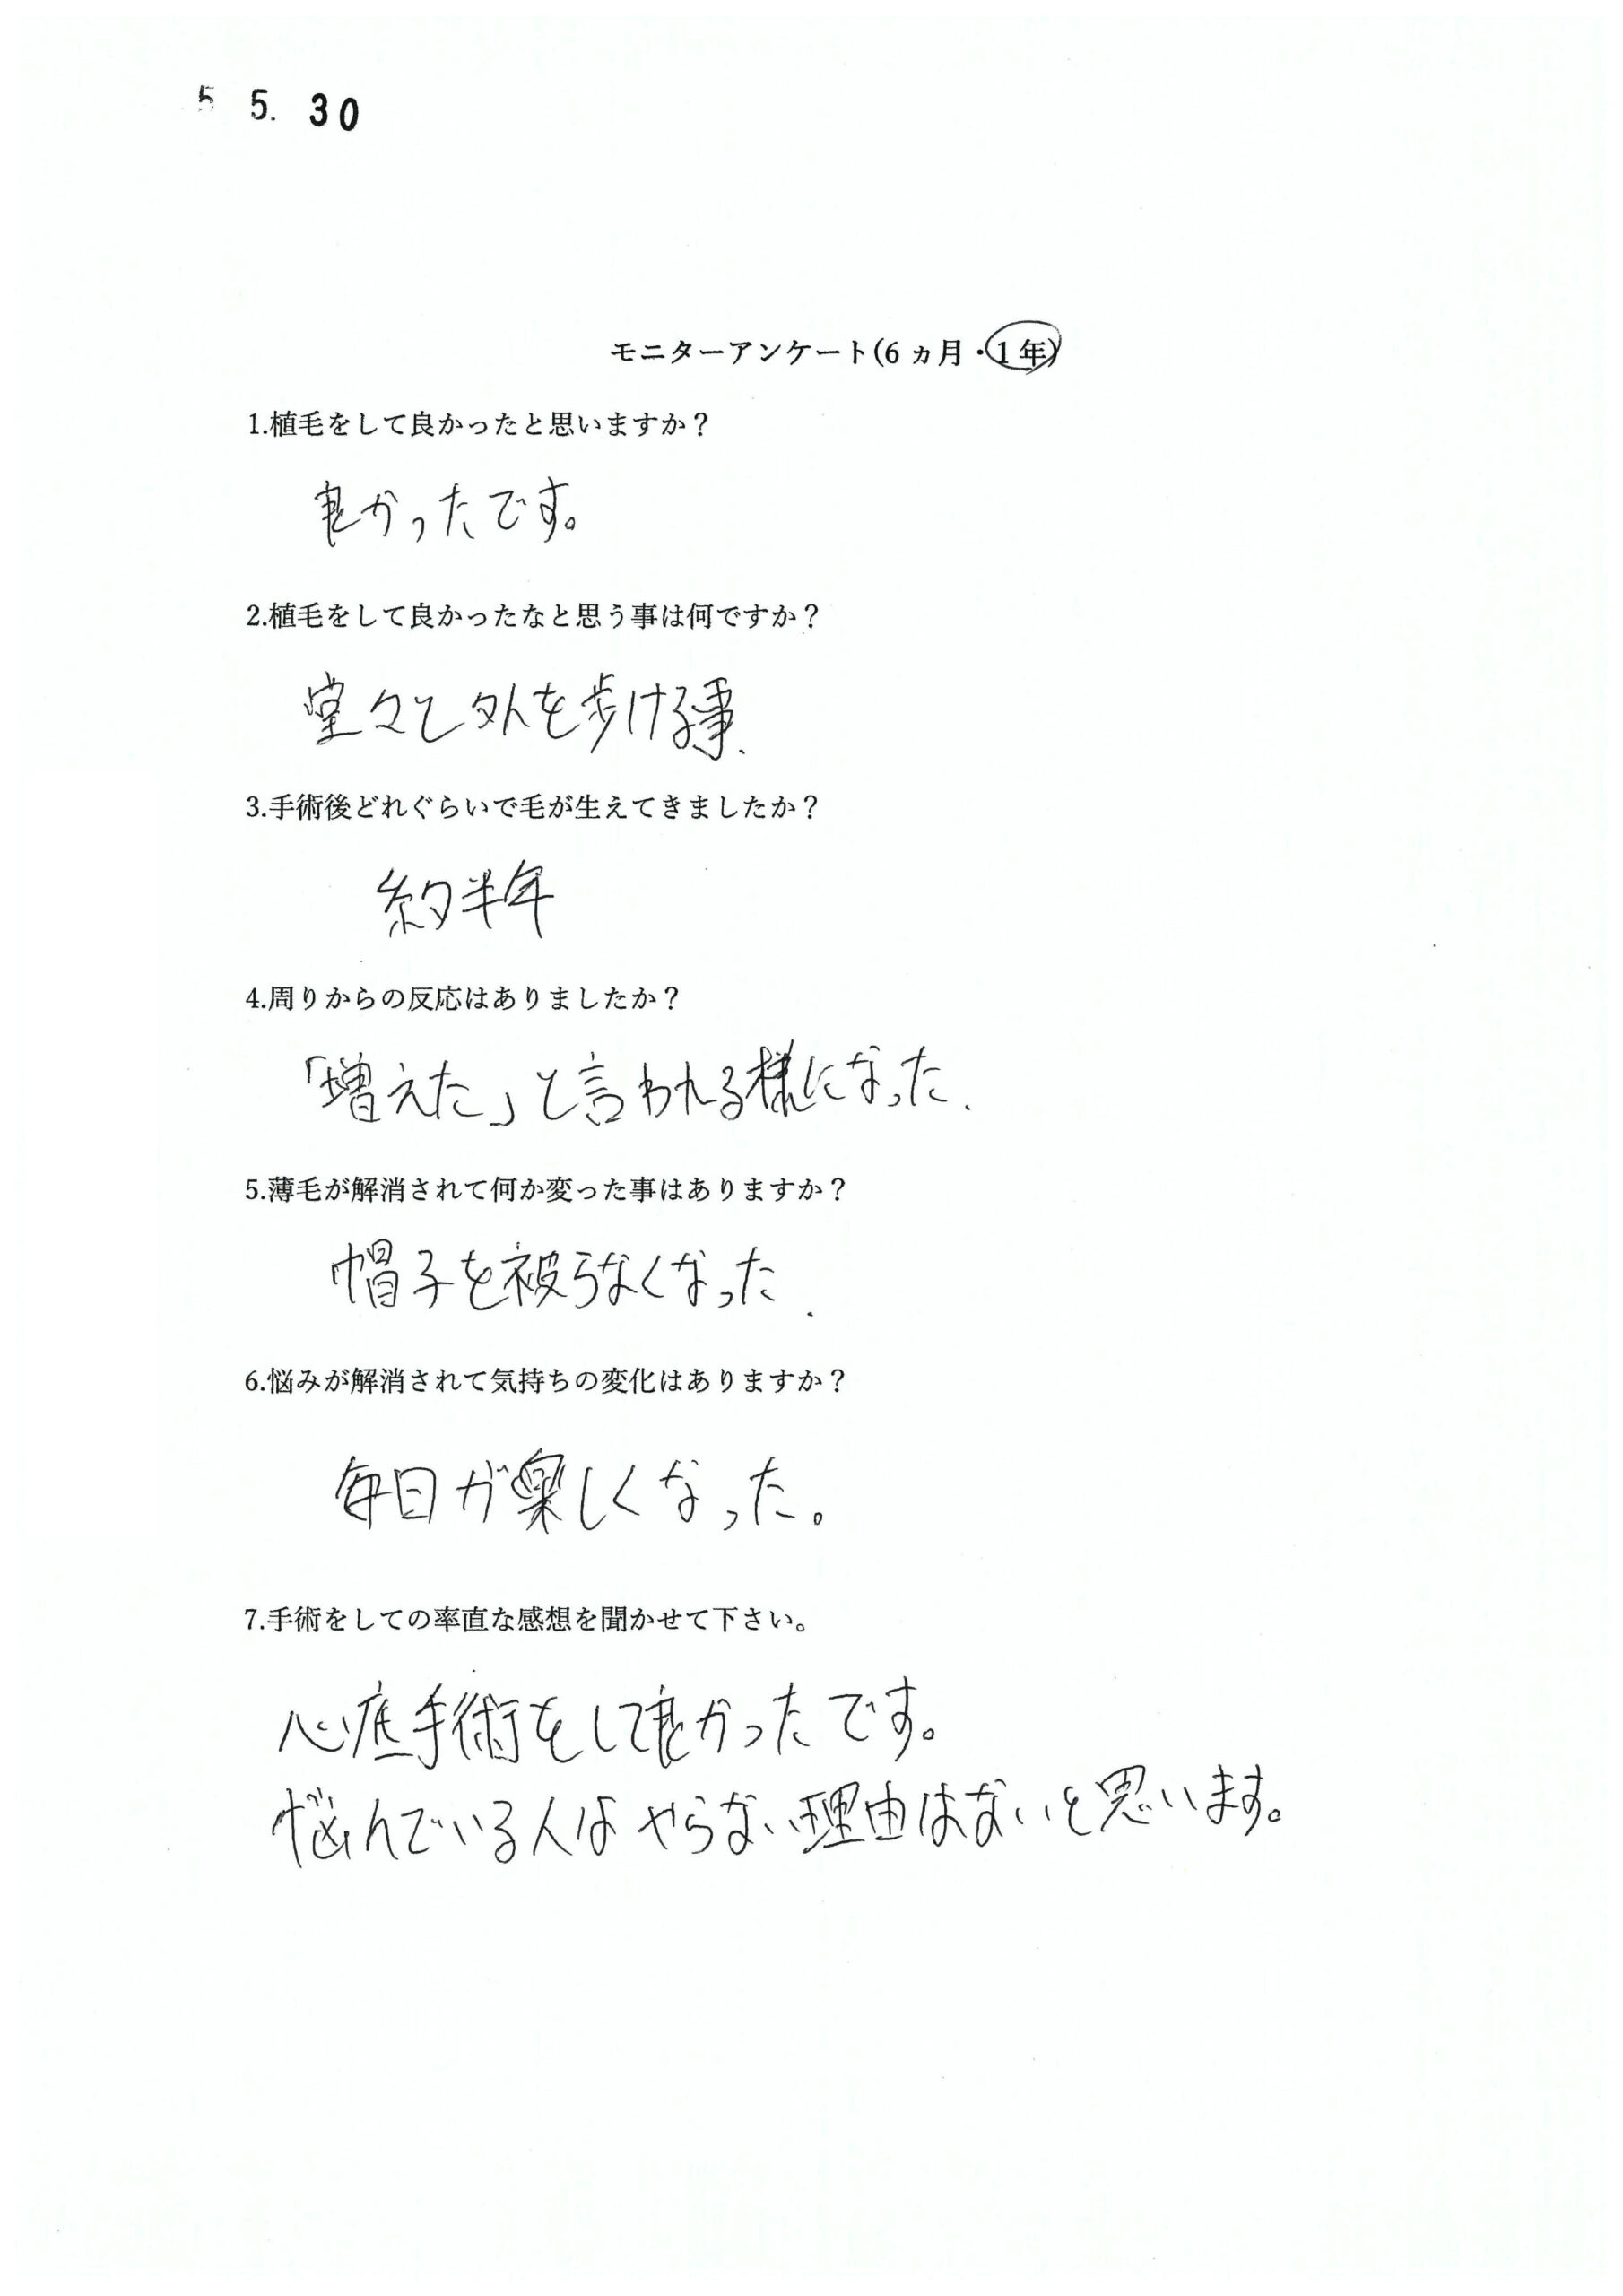 5 5. 30
モニターアンケート(6 ヵ月・1 年)
1.植毛をして良かったと思いますか？
良かったです。
2.植毛をして良かったなと思う事は何ですか？
堂々と外を歩ける事.
3.手術後どれぐらいで毛が生えてきましたか？
約半年
4.周りからの反応はありましたか？
「増えた」と言われる様になった.
5.薄毛が解消されて何か変った事はありますか？
帽子を被らなくなった.
6.悩みが解消されて気持ちの変化はありますか？
毎日が楽しくなった。
7.手術をしての率直な感想を聞かせて下さい。
心底手術をして良かったです。
悩んでいる人はやらない理由はないと思います。